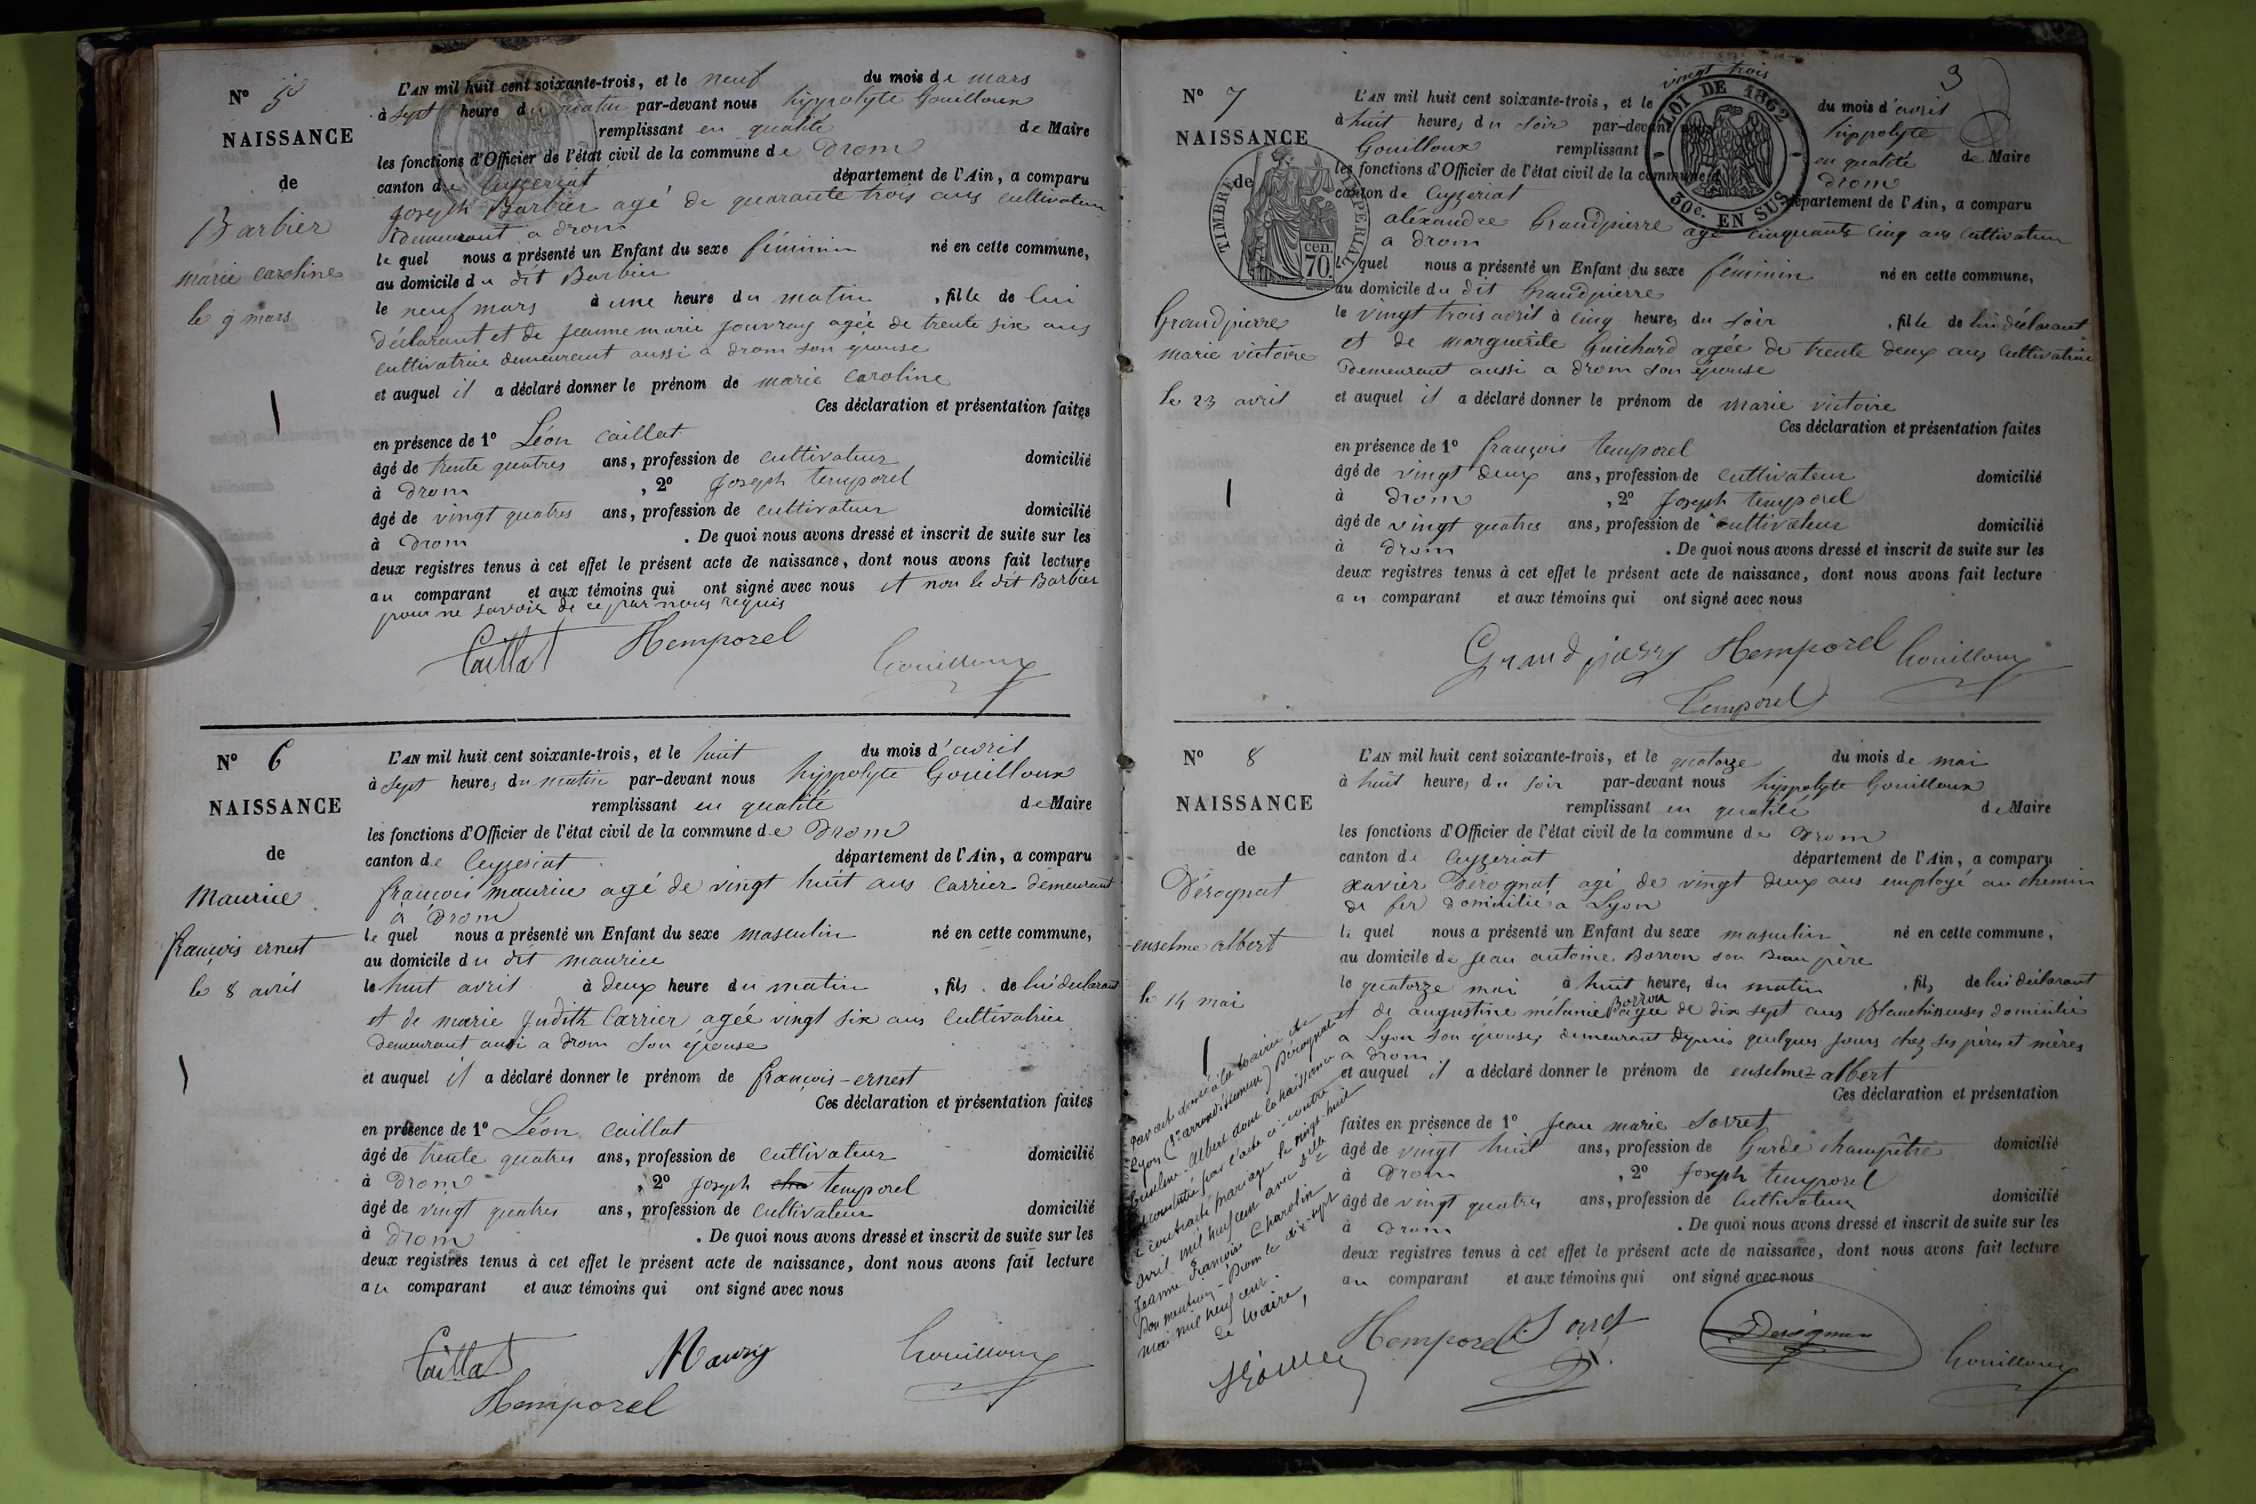 N° 5
NAISSANCE
de
Barbier
marie caroline
le 9 mars
L'AN mil huit cent soixante-trois, et le neuf du mois de mars
à sept heure du matin par-devant nous hyppolyte Gouilloux
remplissant en qualité de Maire
les fonctions d'Officier de l'état civil de la commune de Drom
canton de Ceyzeriat département de l'Ain, a comparu
Joseph Barbier agé de quarante trois ans cultivateur
demeurant a drom
le quel nous a présenté un Enfant du sexe féminin né en cette commune,
au domicile du dit Barbier
le neuf mars à une heure du matin, fille de lui
déclarant et de jeanne marie jouvray agée de trente six ans
cultivatrice demeurant aussi a drom son epouse
et auquel il a déclaré donner le prénom de marie caroline
Ces déclaration et présentation faites
en présence de 1° Léon caillat
âgé de trente quatres ans, profession de cultivateur domicilié
à Drom, 2° Joseph temporel
âgé de vingt quatres ans, profession de cultivateur domicilié
à Drom. De quoi nous avons dressé et inscrit de suite sur les
deux registres tenus à cet effet le présent acte de naissance, dont nous avons fait lecture
au comparant et aux témoins qui ont signé avec nous et non le dit Barbier
pour ne savoir de ce par nous requis
Caillat Hemporel Gouilloux
N° 6
NAISSANCE
de
Maurice
françois ernest
le 8 avril
L'AN mil huit cent soixante-trois, et le huit du mois d'avril
à sept heures du matin par-devant nous hyppolyte Gouilloux
remplissant en qualité de Maire
les fonctions d'Officier de l'état civil de la commune de Drom
canton de Ceyzeriat département de l'Ain, a comparu
françois maurice agé de vingt huit ans Carrier demeurant
a Drom
le quel nous a présenté un Enfant du sexe masculin né en cette commune,
au domicile du dit maurice
le huit avril à deux heure du matin, fils de lui declarant
et de marie Judith Carrier agée vingt six ans cultivatrice
demeurant aussi a drom son épouse
et auquel il a déclaré donner le prénom de françois-ernest
Ces déclaration et présentation faites
en présence de 1° Léon caillat
âgé de trente quatres ans, profession de cultivateur domicilié
à Drom, 2° Joseph temporel
âgé de vingt quatres ans, profession de cultivateur domicilié
à Drom. De quoi nous avons dressé et inscrit de suite sur les
deux registres tenus à cet effet le présent acte de naissance, dont nous avons fait lecture
au comparant et aux témoins qui ont signé avec nous
Caillat Gouilloux
Hemporel
3
N° 7
NAISSANCE
de
TIMBRE IMPERIAL
cen. 70
Grandpierre
marie victoire
le 23 avril
vingt trois
L'AN mil huit cent soixante-trois, et le du mois d'avril
LOI DE 1862
50c. EN SUS
à huit heures du soir par-devant nous hippolyte
Gouilloux remplissant en qualité de Maire
les fonctions d'Officier de l'état civil de la commune de Drom
canton de Ceyzeriat département de l'Ain, a comparu
aléxandre Grandpierre agé cinquante cinq ans cultivateur
a drom
le quel nous a présenté un Enfant du sexe féminin né en cette commune,
au domicile du dit Grandpierre
le vingt trois avril à cinq heures du soir, fille de lui déclarant
et de marguerite Guichard agée de trente deux ans cultivatrice
demeurant aussi a drom son épouse
et auquel il a déclaré donner le prénom de marie victoire
Ces déclaration et présentation faites
en présence de 1° françois temporel
âgé de vingt deux ans, profession de cultivateur domicilié
à Drom, 2° Joseph temporel
âgé de vingt quatres ans, profession de cultivateur domicilié
à Drom. De quoi nous avons dressé et inscrit de suite sur les
deux registres tenus à cet effet le présent acte de naissance, dont nous avons fait lecture
au comparant et aux témoins qui ont signé avec nous
Hemporel Gouilloux
temporel
N° 8
NAISSANCE
de
Dérognat
enselme albert
le 14 mai
L'AN mil huit cent soixante-trois, et le quatorze du mois de mai
à huit heures du soir par-devant nous hippolyte Gouilloux
remplissant en qualité de Maire
les fonctions d'Officier de l'état civil de la commune de Drom
canton de Ceyzeriat département de l'Ain, a comparu
xavier Dérognat agé de vingt deux ans employé au chemin
de fer domicilié a Lyon
le quel nous a présenté un Enfant du sexe masculin né en cette commune,
au domicile de jean antoine Borron son Beau père
le quatorze mai à huit heures du matin, fils de lui déclarant
et de augustine mélanie Borron agée de dix sept ans Blanchisseuses domicilié
a Lyon son épouse, demeurant depuis quelques jours chez ses père et mères
a drom
et auquel il a déclaré donner le prénom de enselme-albert
Ces déclaration et présentation
faites en présence de 1° Jean marie Sorret
âgé de vingt huit ans, profession de Garde champêtre domicilié
à Drom, 2° Joseph temporel
âgé de vingt quatres ans, profession de cultivateur domicilié
à Drom. De quoi nous avons dressé et inscrit de suite sur les
deux registres tenus à cet effet le présent acte de naissance, dont nous avons fait lecture
au comparant et aux témoins qui ont signé avec nous
Par acte dressé à la mairie de
Lyon (2e arrondissement) Dérognat
Enselme-Albert dont la naissance
est constatée par l'acte ci-contre
a contracté mariage le vingt-huit
avril mil neuf cent avec Dlle
Jeanne Françoise Charolin
Pour mention, Drom le dix-sept
mai mil neuf cent.
Le Maire,
Hemporel Sorret Gouilloux